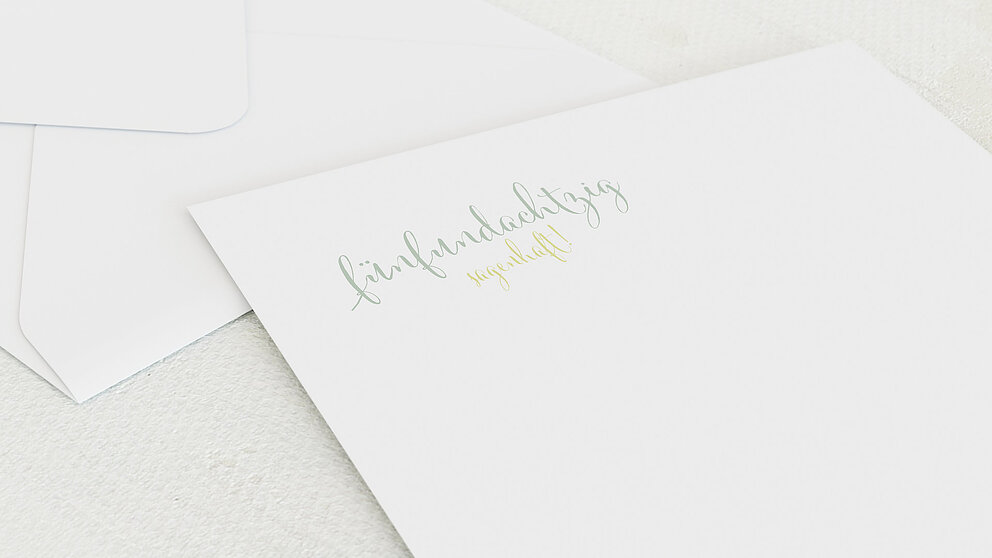 fünfundachtzig
sagenhaft!